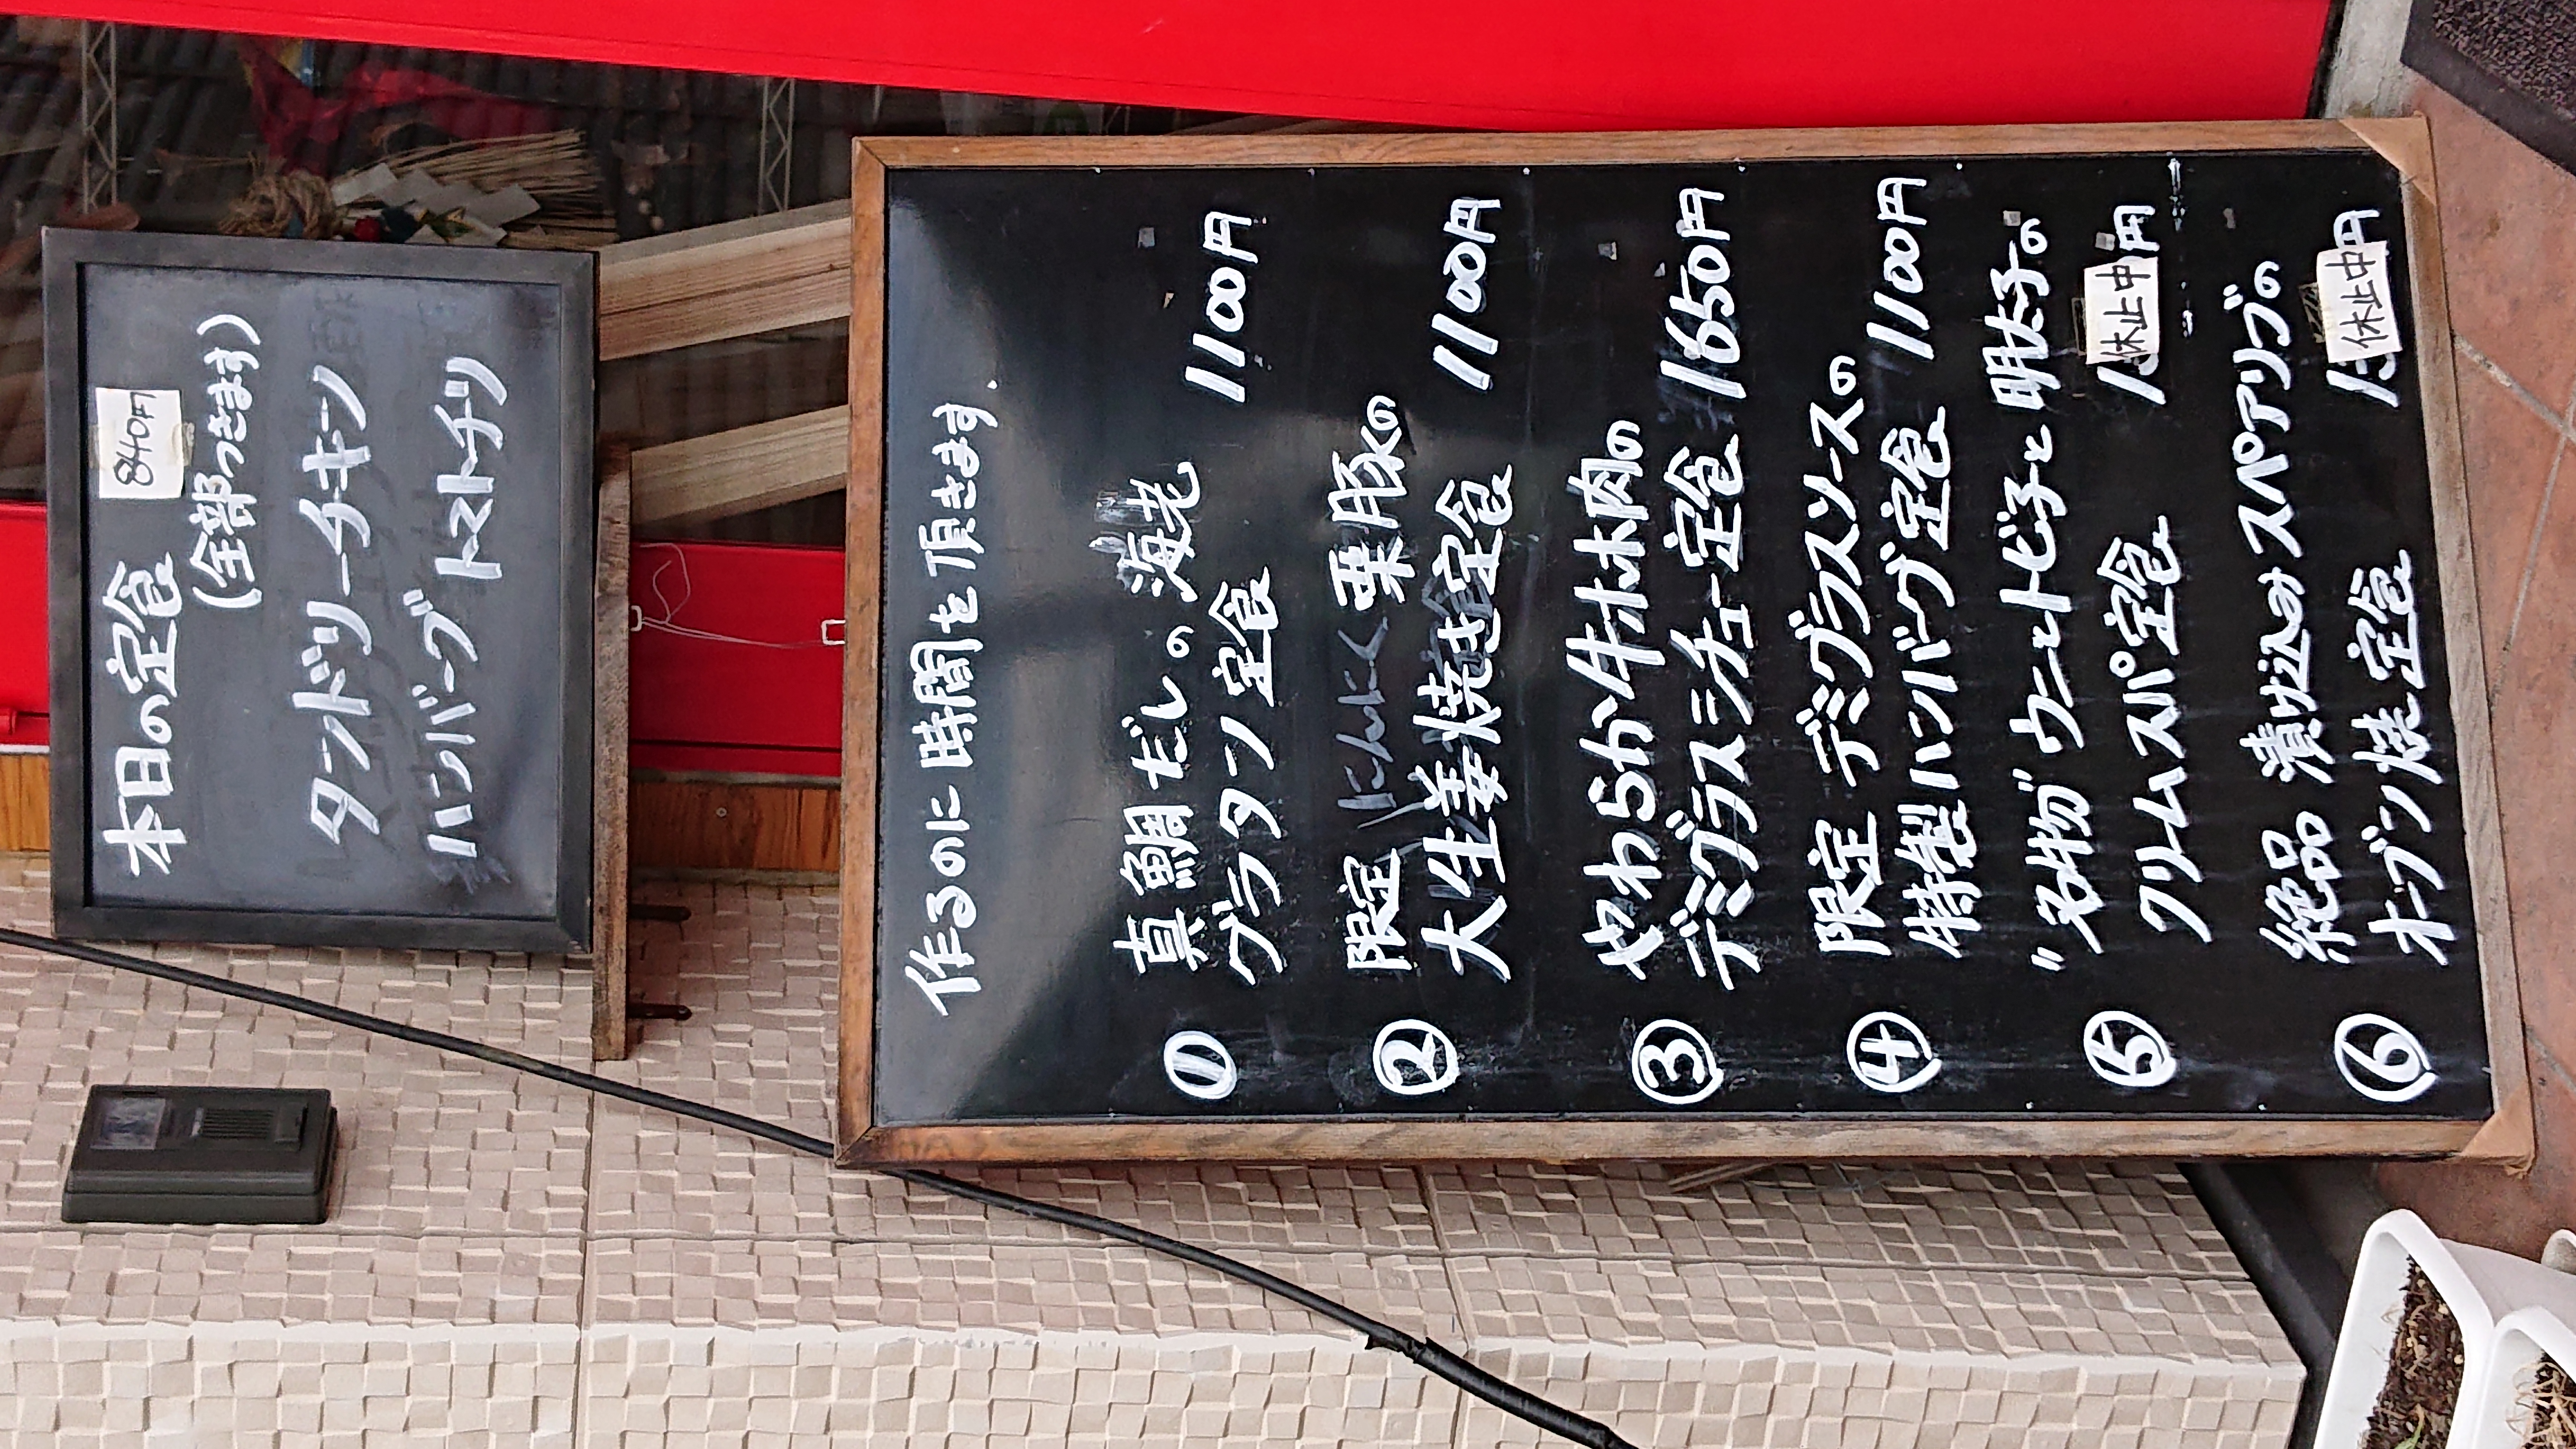 本日の定食 840円
(全部つきます)
タンドリーチキン
ハンバーグ トマトチリ
作るのに時間を頂きます.
① 真鯛だしの 海老
グラタン 定食 1100円
② 限定 にんにく 栗豚の
大生姜焼き定食 1100円
③ やわらか牛ホホ肉の
デミグラスシチュー定食 1650円
④ 限定 デミグラスソースの
特製ハンバーグ定食 1100円
⑤ "名物" ウニとトビ子と明太子の
クリームスパ定食 休止中 円
⑥ 絶品 漬け込みスペアリブの
オーブン焼 定食 休止中 円